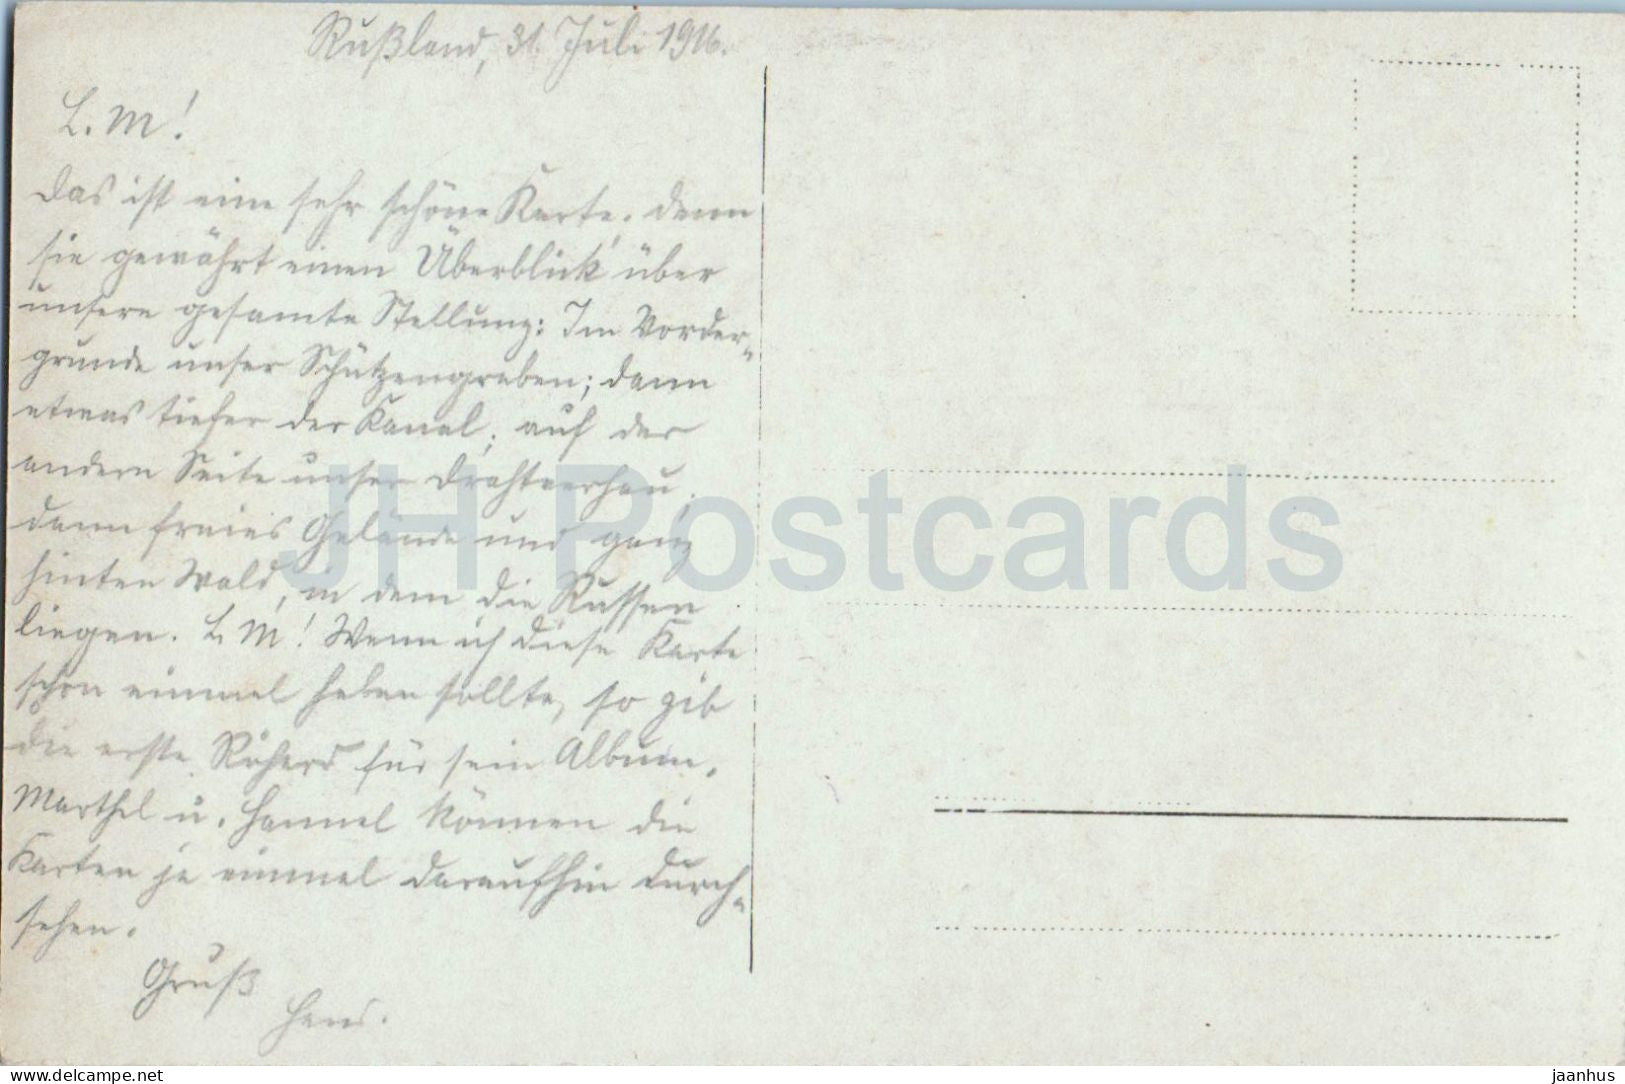 Rußland, 31. Juli 1916.
L. M!
Das ist eine sehr schöne Karte, denn
sie gewährt einen Überblick über
unsere gesamte Stellung: Im Vorder-
grunde unser Schützengraben; dann
etwas tiefer der Kanal; auf der
andern Seite unser Drahtverhau,
dann freies Gelände und ganz
hinten Wald, in dem die Russen
liegen. L. M! Wenn ich diese Karte
schon einmal haben sollte, so gib
die erste Rihard für sein Album.
Marthel u. Hannel können die
Karten je einmel daraufhin durch-
sehen.
Gruß
Hans.
JH Postcards
www.delcampe.net
jaanhus